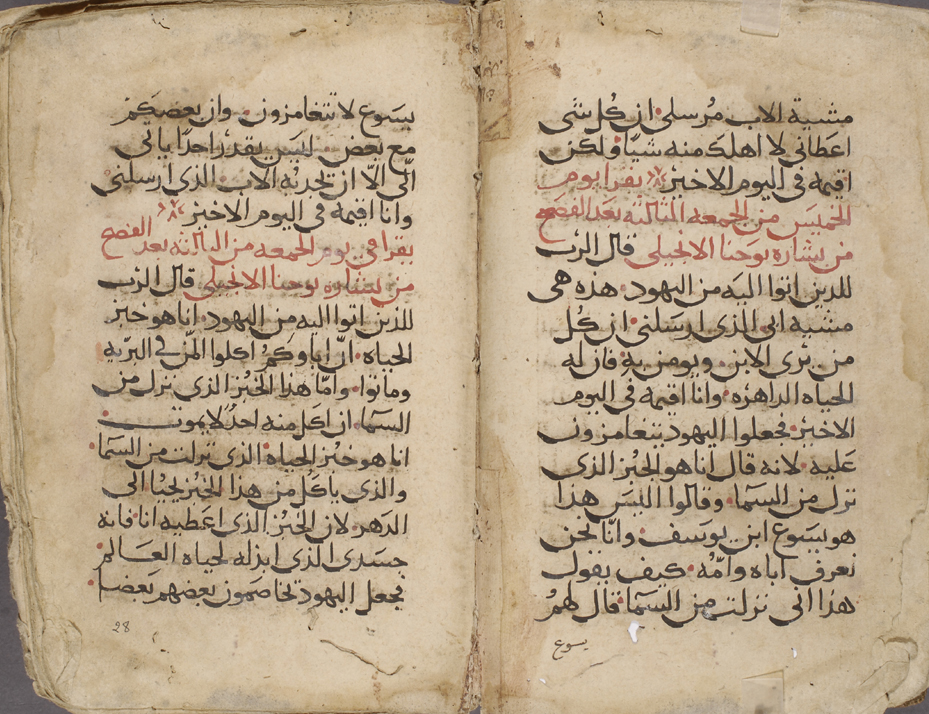 مشية الاب مُرسلي ان كُل شي
اعطاني لا اهلك منه شيًا ولكن
اقيمه في اليوم الاخير يقرا يوم
الخميس من الجمعه الثالثه بعد الفصح
من بشاره يوحنا الانجيلي قال الرب
للدين اتوا اليه من اليهود هذه هي
مشية ابي الذي ارسلني ان كُل
من يرى الابن ويومن به فان له
الحياه الداهره وانا اقيمه في اليوم
الاخير فجعلوا اليهود يتغامزون
عليه لانه قال انا هو الخبز الذي
نزل من السما وقالوا اليس هذا
هو يسوع ابن يوسف وانّا نحن
نعرف اباه وامّه كيف يقول
هذا اني نزلت من السما قال لهمُ
يسوع
يسوع لا تتغامزون وان بعضكم
مع بعض ليس يقدر احدًا ياتي
الّي الاّ ان يجدبه الاب الذي ارسلني
وانا اقيمه في اليوم الاخير
يقرا في يوم الجمعه من التالته بعد الفصح
من بشاره يوحنا الانجيلي قال الرب
للذين اتوا اليه من اليهود انا هو خبز
الحياه انّ اباوكمُ اكلوا المنّ في البريه
وماتوا وامّا هذا الخبز الذي نزل من
السما ان اكل منه احدُ لا يموت
انا هو خبز الحياه الذي نزلت من السما
والذي ياكل من هذا الخبز يحيا الى
الدهر لان الخبز الذي اعطيه انا فانه
جسدي الذي ابذله لحياه العالم
فجعل اليهود تخاصمون بعضهم بعضا
28